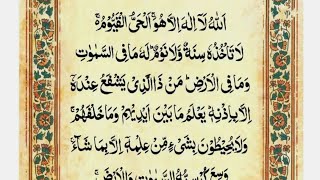 اَللّٰهُ لَاۤ اِلٰهَ اِلَّا هُوَۚ اَلْحَیُّ الْقَیُّوْمُ ۚ
لَا تَاْخُذُهٗ سِنَةٌ وَّلَا نَوْمٌؕ لَهٗ مَا فِی السَّمٰوٰتِ
وَمَا فِی الْاَرْضِؕ مَنْ ذَا الَّذِیْ یَشْفَعُ عِنْدَهٗۤ
اِلَّا بِاِذْنِهٖؕ یَعْلَمُ مَا بَیْنَ اَیْدِیْهِمْ وَمَا خَلْفَهُمْۚ
وَلَا یُحِیْطُوْنَ بِشَیْءٍ مِّنْ عِلْمِهٖۤ اِلَّا بِمَا شَآءَۚ
وَسِعَ كُرْسِیُّهُ السَّمٰوٰتِ وَالْاَرْضَۚ